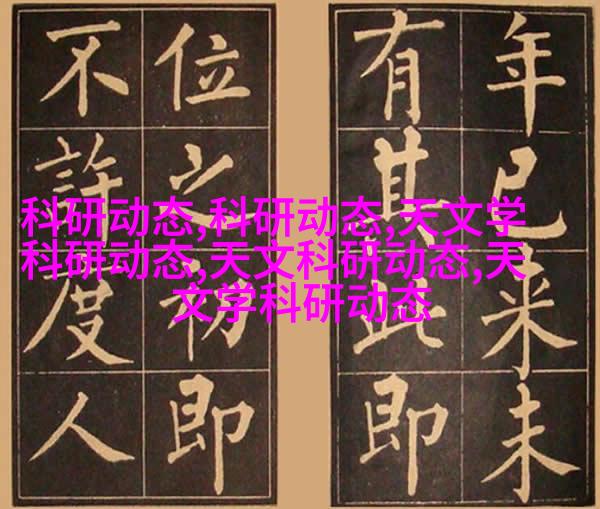 年已来未
有其即
位之初即
不許度人
科研动态,科研动态,天文学
科研动态,天文科研动态,天
文学科研动态